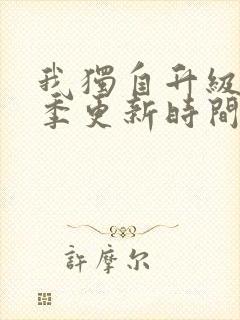 我獨自升級
季更新時間
許摩尔